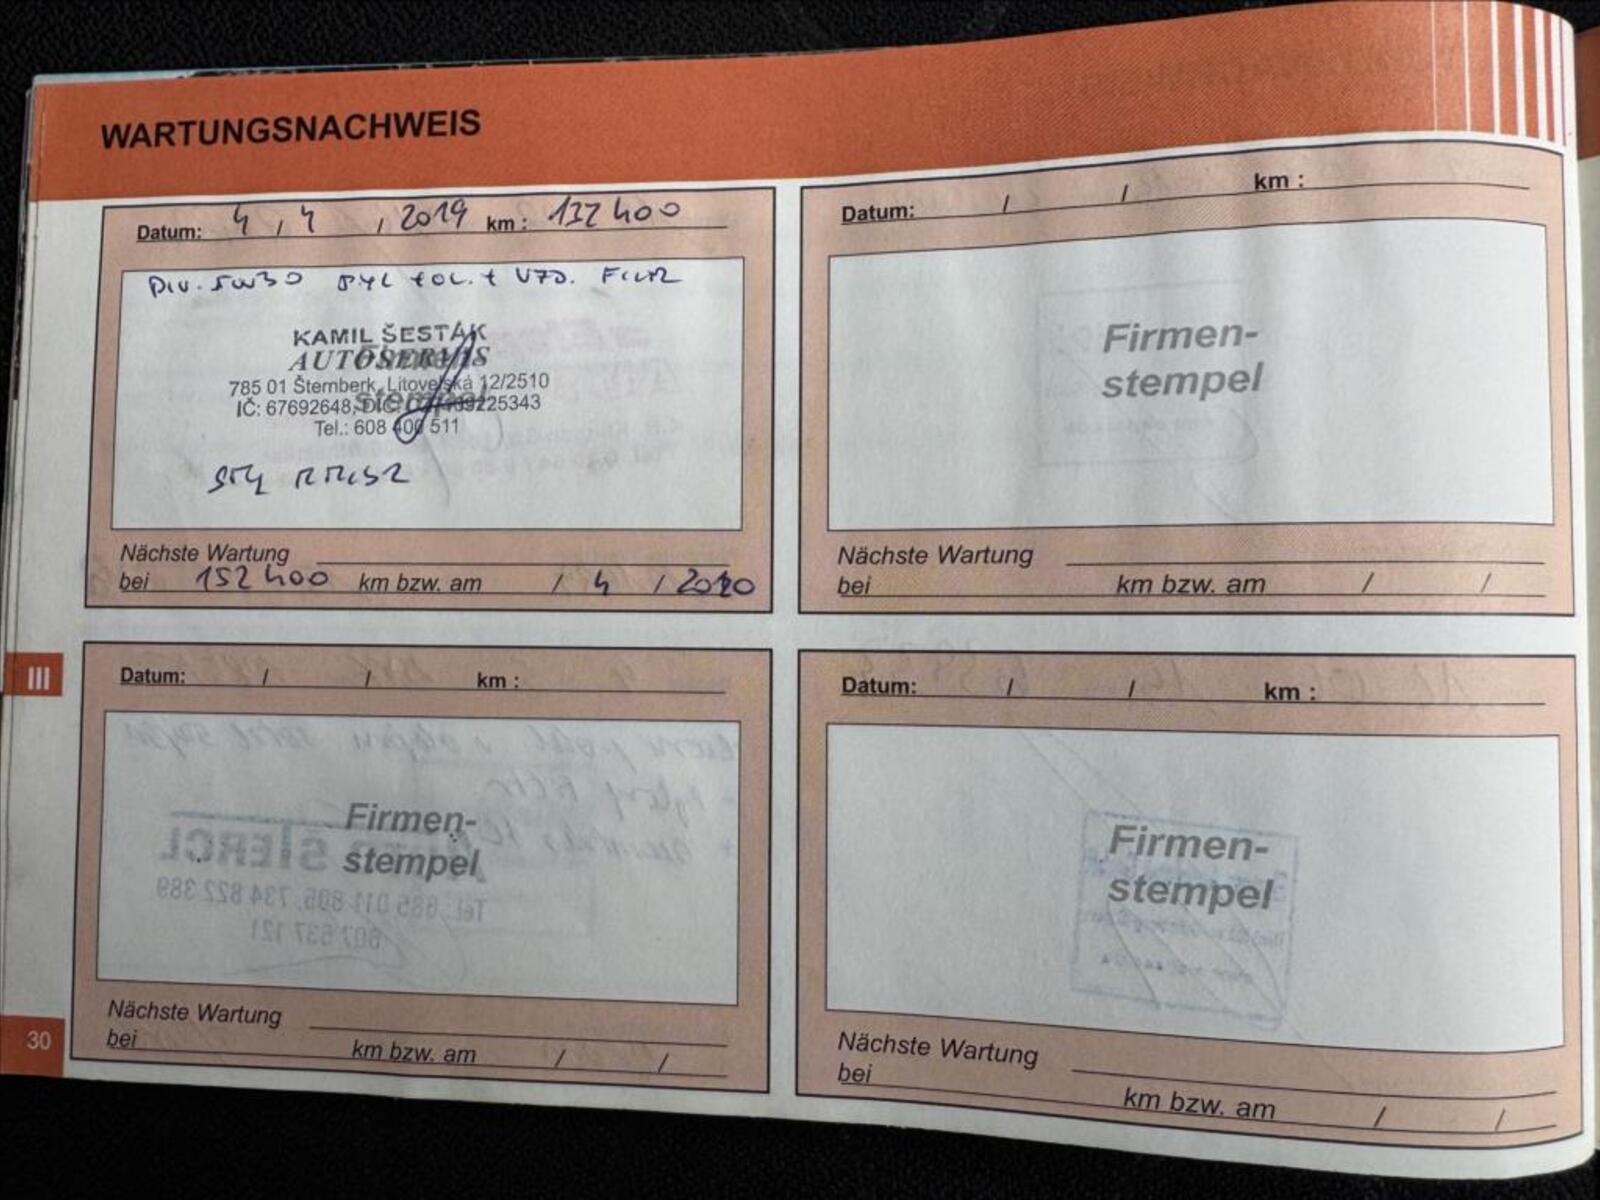 WARTUNGSNACHWEIS
Datum: 4 / 4 / 2019 km : 132 400
5W30 PYL + OL. + VZD. FILTR
KAMIL ŠESTÁK
AUTOSERVIS
785 01 Šternberk, Litovelská 12/2510
IČ: 67692648, DIČ:
Tel.: 608 400 511
Nächste Wartung
bei 152 400 km bzw. am / 4 / 2020
Datum: / / km :
Firmen-
stempel
Nächste Wartung
bei km bzw. am / /
III
Datum: / / km :
Firmen-
stempel
Nächste Wartung
bei km bzw. am / /
Datum: / / km :
Firmen-
stempel
Nächste Wartung
bei km bzw. am / /
30